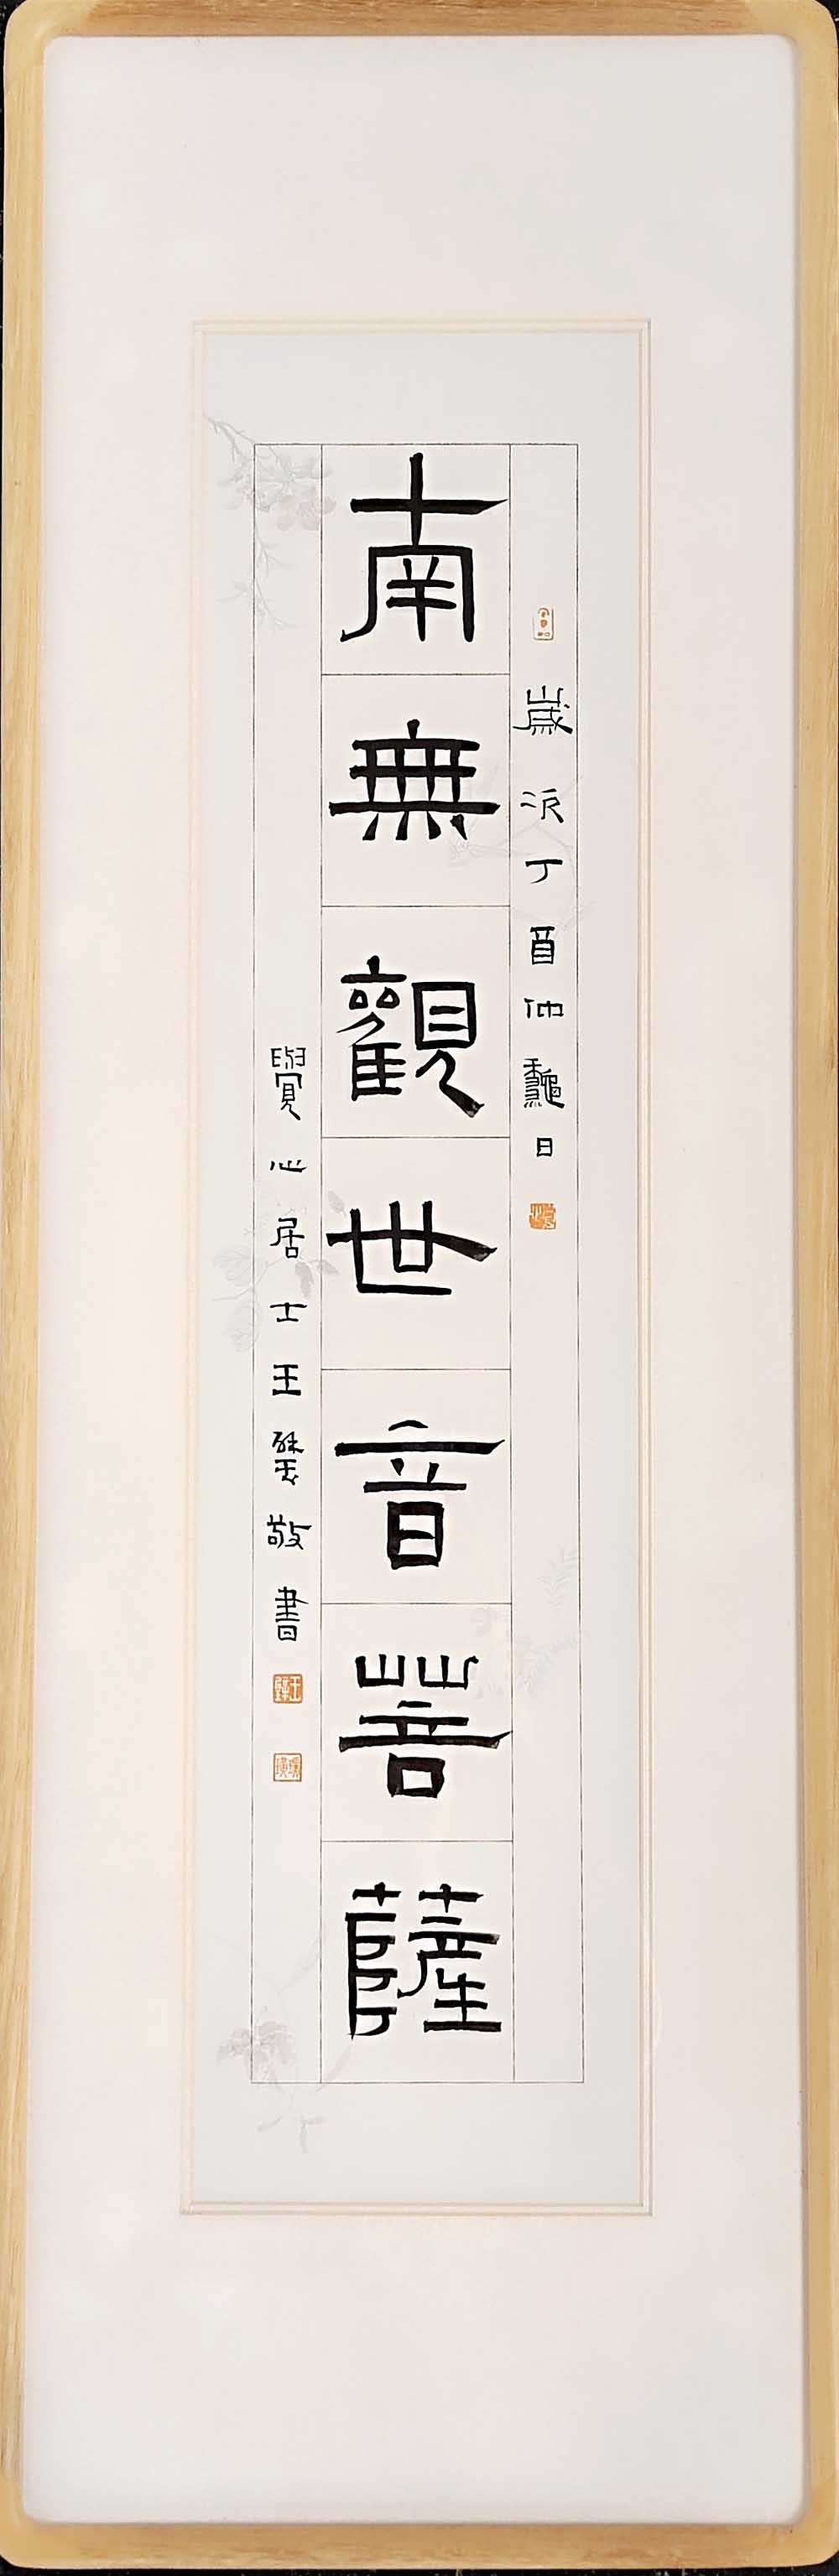 歲次丁酉仲龝日
南無觀世音菩薩
覺心居士王璧敬書